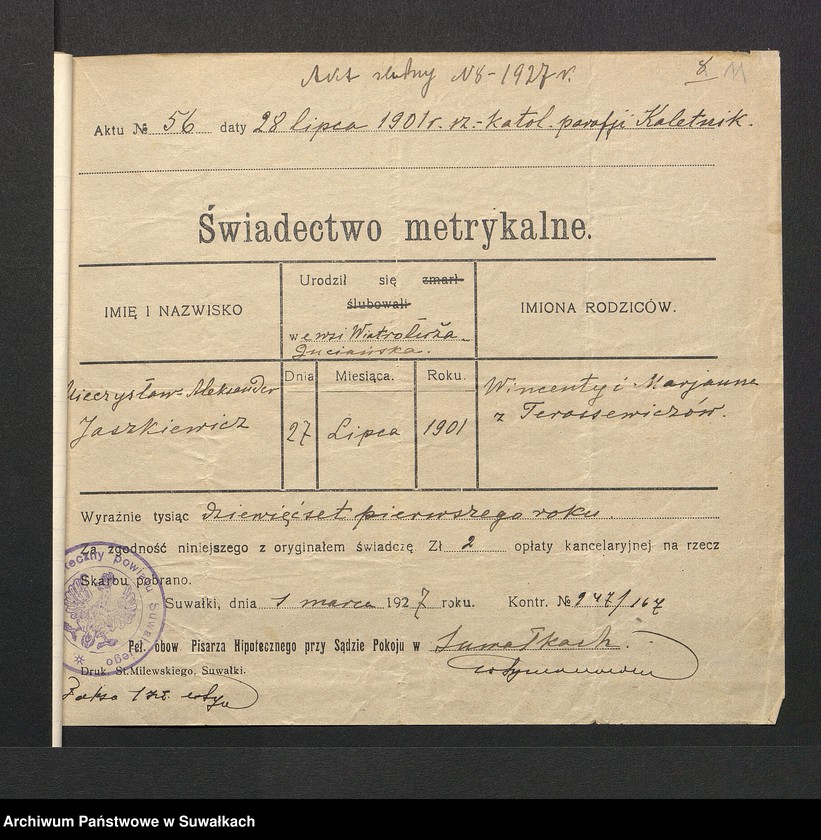 Akt ślubny N8-1927 r. 8
Aktu № 56 daty 28 lipca 1901 r. rz.-katol. parafji Kaletnik.
Świadectwo metrykalne.
IMIĘ I NAZWISKO
Urodził się zmarł
ślubowali
we wsi Wiatrołuża
IMIONA RODZICÓW.
Mieczysław-Aleksander
Jaszkiewicz
Dnia Miesiąca. Roku.
27 Lipca 1901
Wincenty i Marjanna
z Terassewiczów.
Wyraźnie tysiąc dziewięćset pierwszego roku.
Za zgodność niniejszego z oryginałem świadczę. Zł 2 opłaty kancelaryjnej na rzecz
Skarbu pobrano.
Suwałki, dnia 1 marca 1927 roku. Kontr. № 947/167
Peł. obow. Pisarza Hipotecznego przy Sądzie Pokoju w Suwałkach.
Druk. St. Milewskiego, Suwałki.
teczny powiatu Suwalskiego
Archiwum Państwowe w Suwałkach